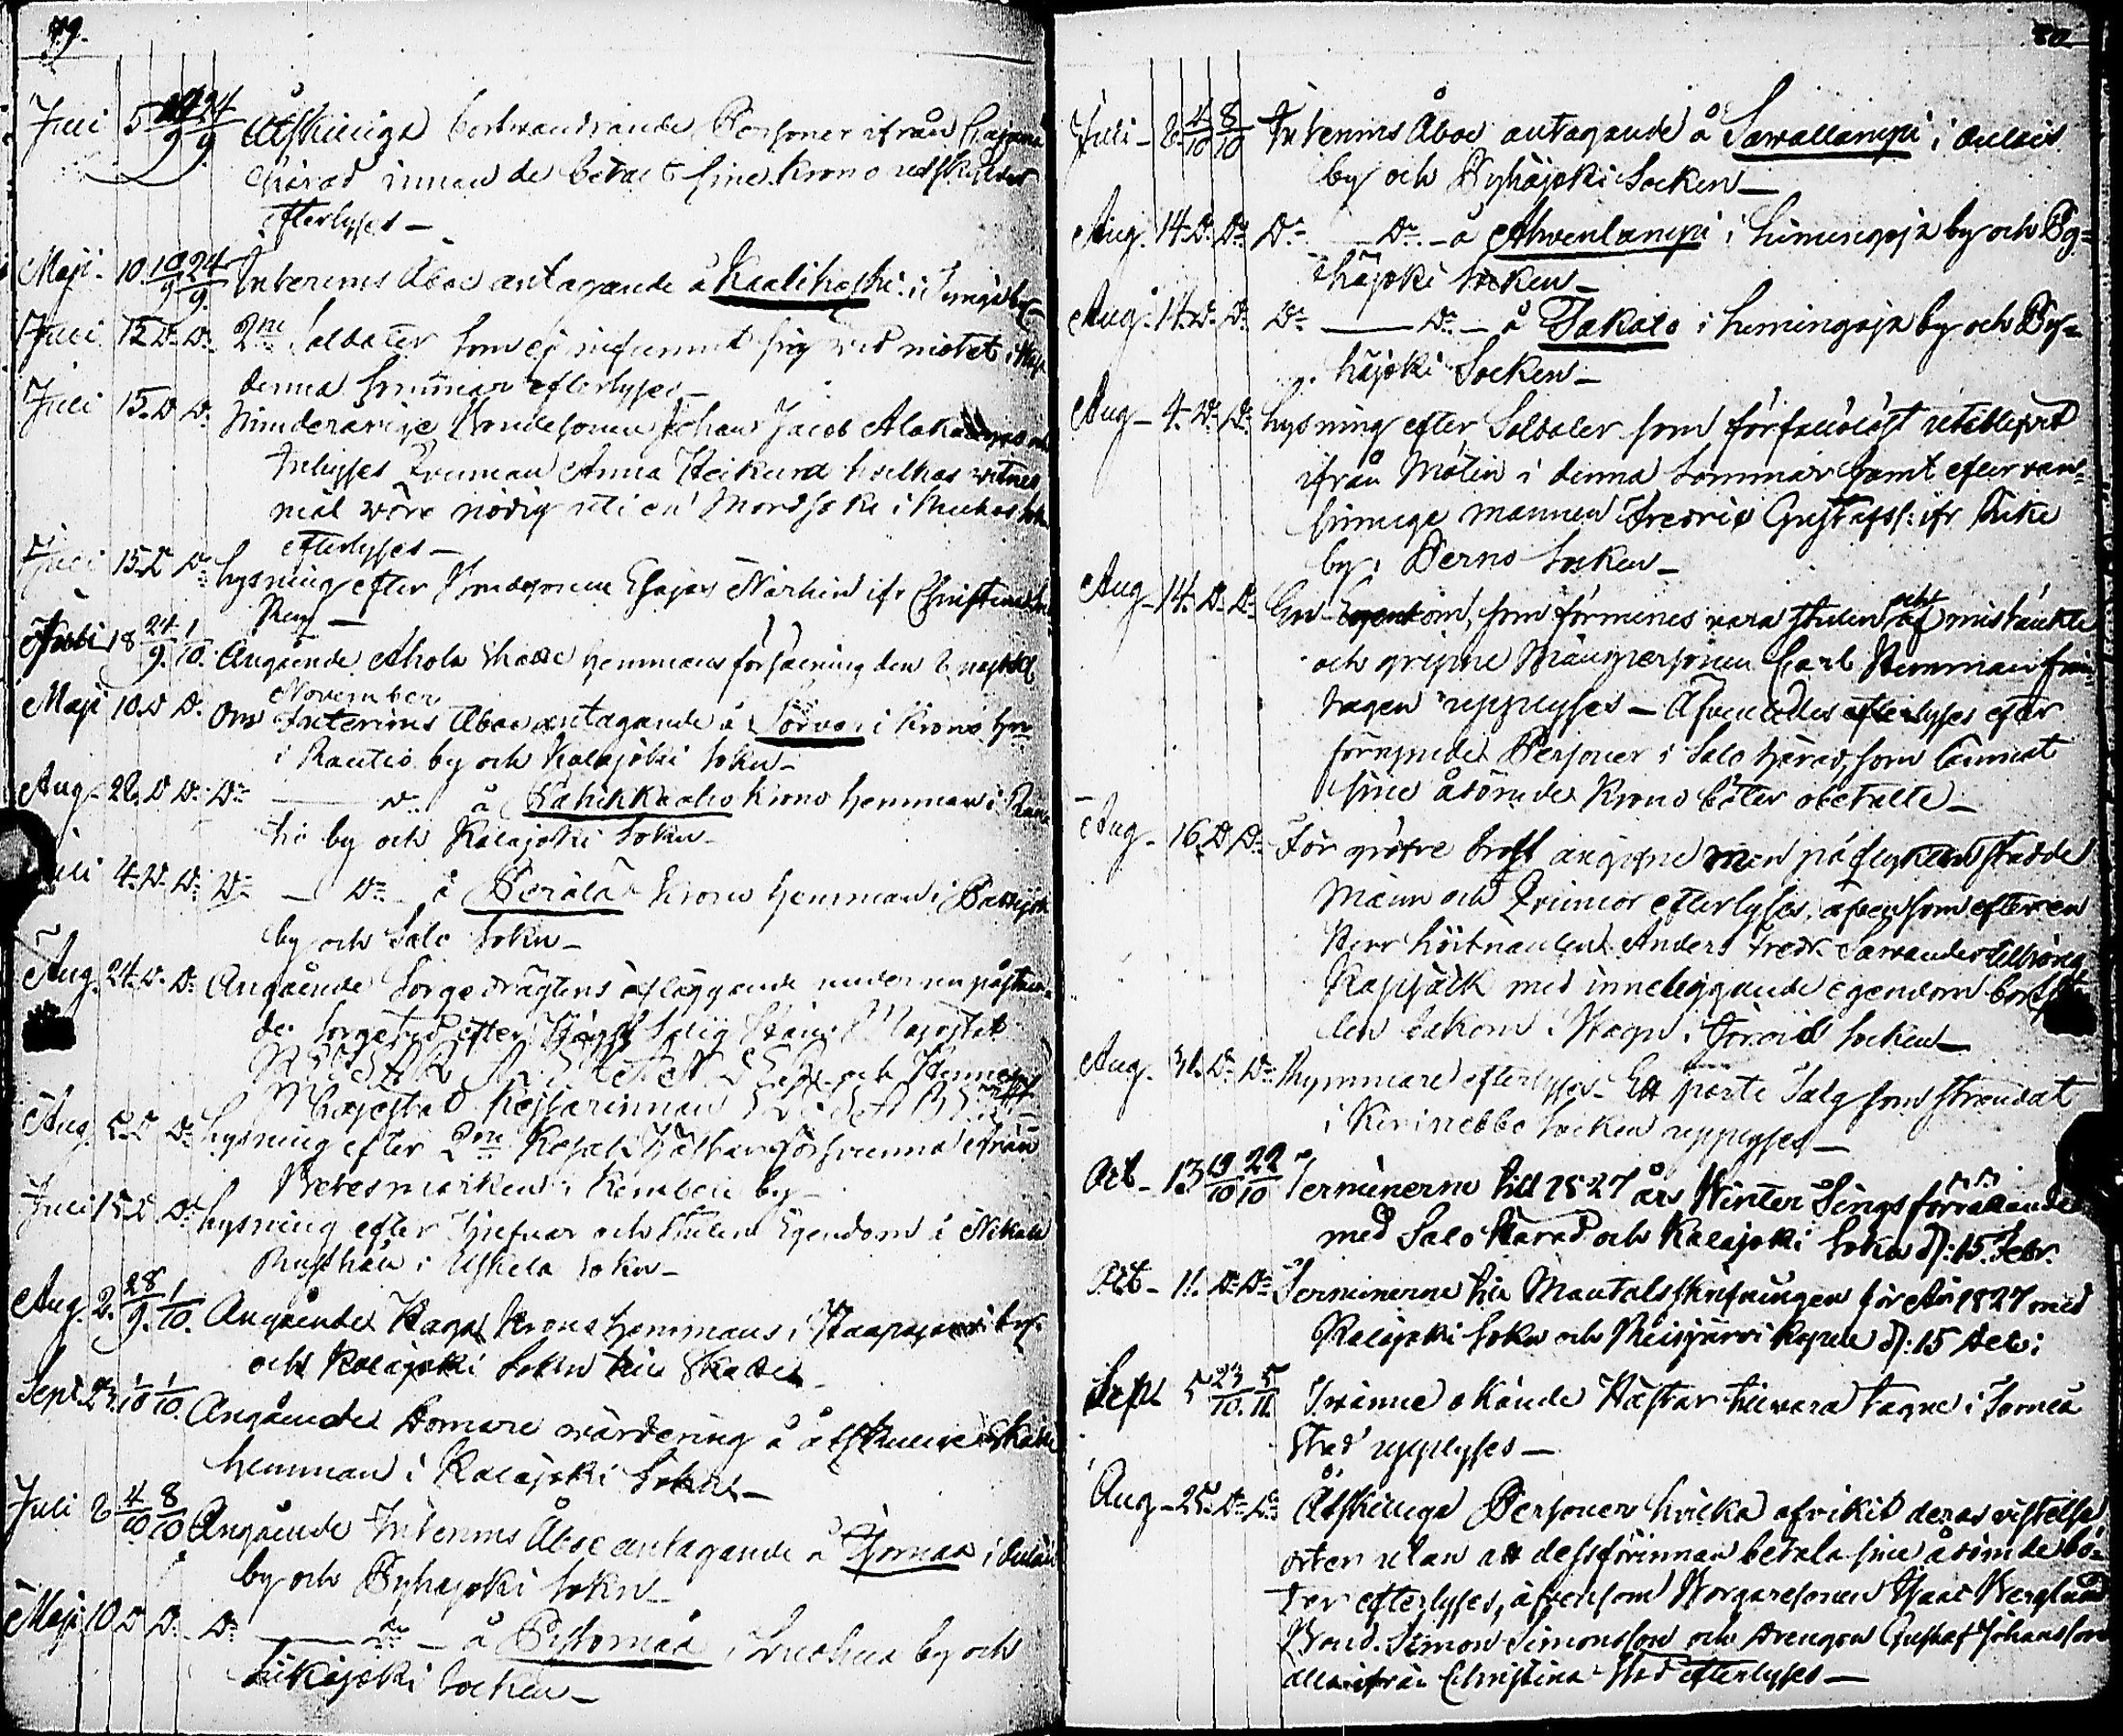 79.
Juli 5 19/9 24/9 Åtskilliga bortvandrande Personer ifrån Cajana
härad innan de betalt sine Krono utskylder
efterlyses —
Maji 10. 19/9 24/9. Interims Åboe antagande å Kaalikoski i
Juli 15 D:o D:o 2ne Soldater som ej infunnit sig vid mötet i
denna sommar efterlyses —
Juli 15. D:o D:o Minderårige Bondesonen Johan Jacob
Inhyses Qvinnan Anna Heikura hvilkas vitnes
mål wore nödig uti en Mordsak i Muhos
efterlyses —
Juli 15. D:o D:o Lysning efter Bondesonen Esajas Närhin ifr Christina
Juli 18 24/9. 1/10. Angående Ahola Skatte hemmans försäljning den 2 nästk.
November
Maji 10. D:o D:o Om Interims Åboe antagande å Sorvari Krono Hem
i Rautio by och Kalajoki Sokn —
Aug. 22. D:o D:o D:o — D:o å Pahikkaaho Krono hemman i Rau
tio by och Kalajoki Sokn —
Juli 4. D:o D:o D:o — D:o å Perälä Krono hemman i Pattijoki
by och Salo Sokn —
Aug. 24. D:o D:o Angående Sorgedrägtens afläggande under nu påståen-
de sorgetid efter Högst Salig Hans Majestät
KEJSAR ALEXANDER och Hennes
Majestät Kejsarinnan ELISABETH
Aug. 5. D:o D:o Lysning efter 2ne försvunna ifrån
Betesmarken i Kembele by —
Juli 15 D:o D:o Lysning efter Tjufvar och stulen Egendom å Nikula
Rusthåll i Uskela Sokn —
Aug. 2. 28/9. 1/10. Angående Haga Krono Hemmans i Haapajärvi by
och Kalajoki Sokn till Skatte
Sept. 23. 1/10 1/10. Angående Domare värdering å åtskillige Skatte
hemman i Kalajoki Sokn —
Juli 2 4/10 8/10 Angående Interims Åboe antagande å Jornaa i Oulais
by och Pyhäjoki Sokn —
Maji 10 D:o D:o D:o — D:o — å Pistomaa i by och
Siikajoki Socken —
80
Juli 2 4/10 8/10 Interims Åboe antagande å Sawallampi i Oulais
by och Pyhäjoki Socken —
Aug. 14. D:o D:o D:o — D:o — å Ahvenlampi i Lumingoja by och Py-
häjoki Socken —
Aug. 14. D:o D:o D:o — D:o — å Takalo i Lumingoja by och Py-
häjoki Socken —
Aug 4. D:o D:o Lysning efter Soldater som förfallolöst uteblifvit
ifrån Möten i denna Sommar samt efter van-
sinnige mannen Fredric Gustafss: ifr
by i Perno Socken —
Aug 14. D:o D:o En som förmenes vara stulen af misstänkte
och gripne Manspersonen Carl från-
tagen upplyses — Äfvenledes efterlyses efter
förrymde Personer i Salo härad, som lämnat
sine ådömde Krono böter obetalte —
Aug 16. D:o D:o För gröfre brott angifne men på flykten stadde
Männ och Qvinnor efterlyses, äfvensom efter en
Herr Löitnanten Anders Fredr. tillhörig
Kappsäck med inneliggande egendom bortstu
len bakom Vagn i Jorois Socken —
Aug. 31. D:o D:o Rymmare efterlyses. Ett parti Talg som strandat
i Kivinebbe Socken upplyses —
Oct. 13 19/10 22/10 Terminerne till 1827 års Winter Tings förrättande
med Salo Härad och Kalajoki Sokn d: 15 Febr.
Oct. 11. D:o D:o Terminerne till Mantalsskrifningen för År 1827 med
Kalajoki Sokn och Reisjärvi Kapell d: 15 Dec:
Sept 5 23/10. 5/11. Tvänne okände Hästar tillvara tagne i Torneå
Stad upplyses —
Aug 25. D:o D:o Åtskillige Personer hvilka afvikit deras vistelse
orter utan att dessförinnan betala sine ådömde bö-
ter efterlyses, äfvensom Borgaresonen Isaac Berglund
Bond. Simon Simonsson och Drengen Gustaf Johansson
alla ifrån Christina Stad efterlyses —